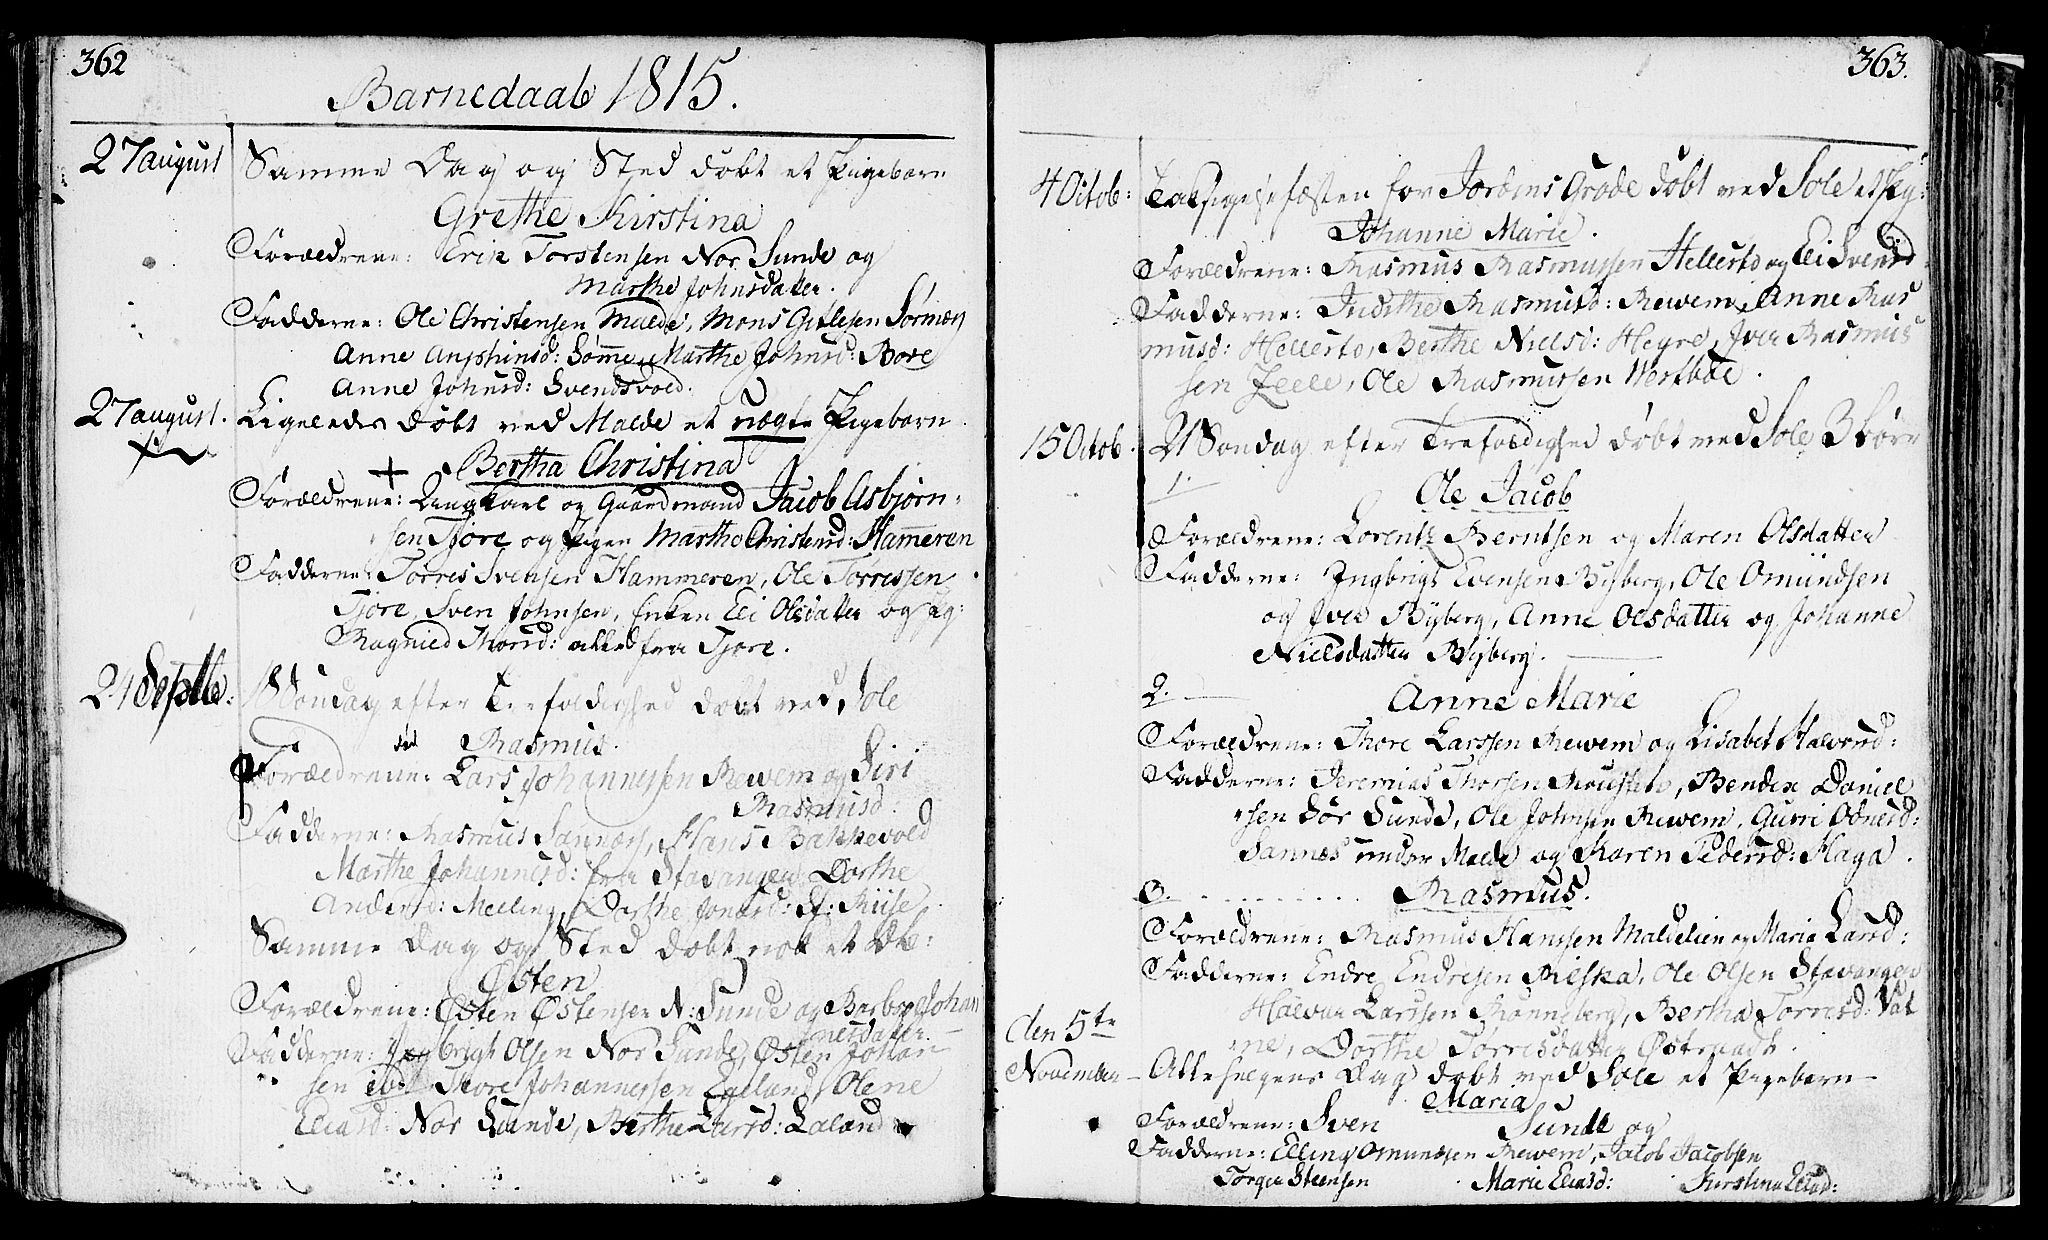 362
Barnedaab 1815.
27 august Samme Dag og Sted døbt et Pigebarn
Grethe Kirstina
Forældrene: Erik Torstensen Nor Sunde og
Marthe Johnsdatter.
Fadderne: Ole Christensen Malde, Mons Gitlesen Sørnæs
Anne Ansphinsd: Sømme, Marthe Johnsd: Bore
Anne Johnsd: Svendsvold.
27 august. Ligeledes døbt ved Malde et uægte Pigebarn
Bertha Christina
Forældrene: Ungkarl og Gaardmand Jacob Asbjørn-
sen Tjore og Pigen Martha Christensd: Hameren
Fadderne: Torres Svensen Hammeren, Ole Torressen
Tjore, Sven Johnsen, Enken Eli Olsdatter og Pig:
Ragnied Thorsd: alle fra Tjore.
24 Septbr: Søndag efter Trefoldighed døbt ved Sole
Rasmus.
Forældrene: Lars Johannessen Rewem og Siri
Rasmusd:
Fadderne: Rasmus Sannæs, Hans Bakkevold
Marthe Johannesd: fra Stavanger, Dorthe
Andersd: Melling, Dorthe Jonasd: St: Riise.
Samme Dag og Sted døbt nok et Db:
Østen
Forældrene: Østen Østensen N: Sunde og Barbroe Johan
nesdatter
Fadderne: Ingbrigt Olsen Nor Sunde, Østen Johan-
sen ibd Thore Johannessen Laland, Olene
Eliasd: Nor Sunde, Berthe Larsd: Laland
363.
4 Octob: Taksigelsefæsten for Jordens Grøde døbt ved Sole et Pig:
Johanne Marie.
Forældrene: Rasmus Rasmussen Hellestø og Eli Svensd
Fadderne: Judithe Rasmusd: Rewem, Anne Ras
musd: Hellestø, Berthe Nielsd: Hegre, Iver Rasmus
sen Zeele, Ole Rasmussen Westbøe.
15 Octob. 21 Søndag efter Trefoldighed døbt ved Sole 3 børn
1.
Ole Jacob
Forældrene: Lorentz Berntsen og Maren Olsdatter
Fadderne: Ingbrigt Evensen Byberg, Ole Omundsen
og Iver Byberg, Anne Olsdatter og Johanne
Nielsdatter Byberg.
2. Anne Marie
Forældrene: Thore Larssen Rewem og Lisabet Halvorsd:
Fadderne: Jeremias Thorsen, Bendix Daniel
sen Sør Sunde, Ole Johnsen Rewem, Gurri Odnesd:
Sannes under Malde og Karen Pedersd: Haga.
3. Rasmus.
Forældrene: Rasmus Hanssen Maldelien og Maria Larsd:
Fadderne: Endre Endresen Riska, Ole Olsen Stavanger
Halvor Larssen Rønneberg, Bertha Torresd: Vat
ne, Dorthe Torrisdatter Østraadt.
den 5te
November Alle helgens Dag døbt ved Sole et Pigebarn
Maria
Forældrene: Sven Sunde og
Fadderne: Elling Omundsen Rewem, Jacob Jacobsen
Torger Steensen Marie Eliasd: Kirstina Eliasd: